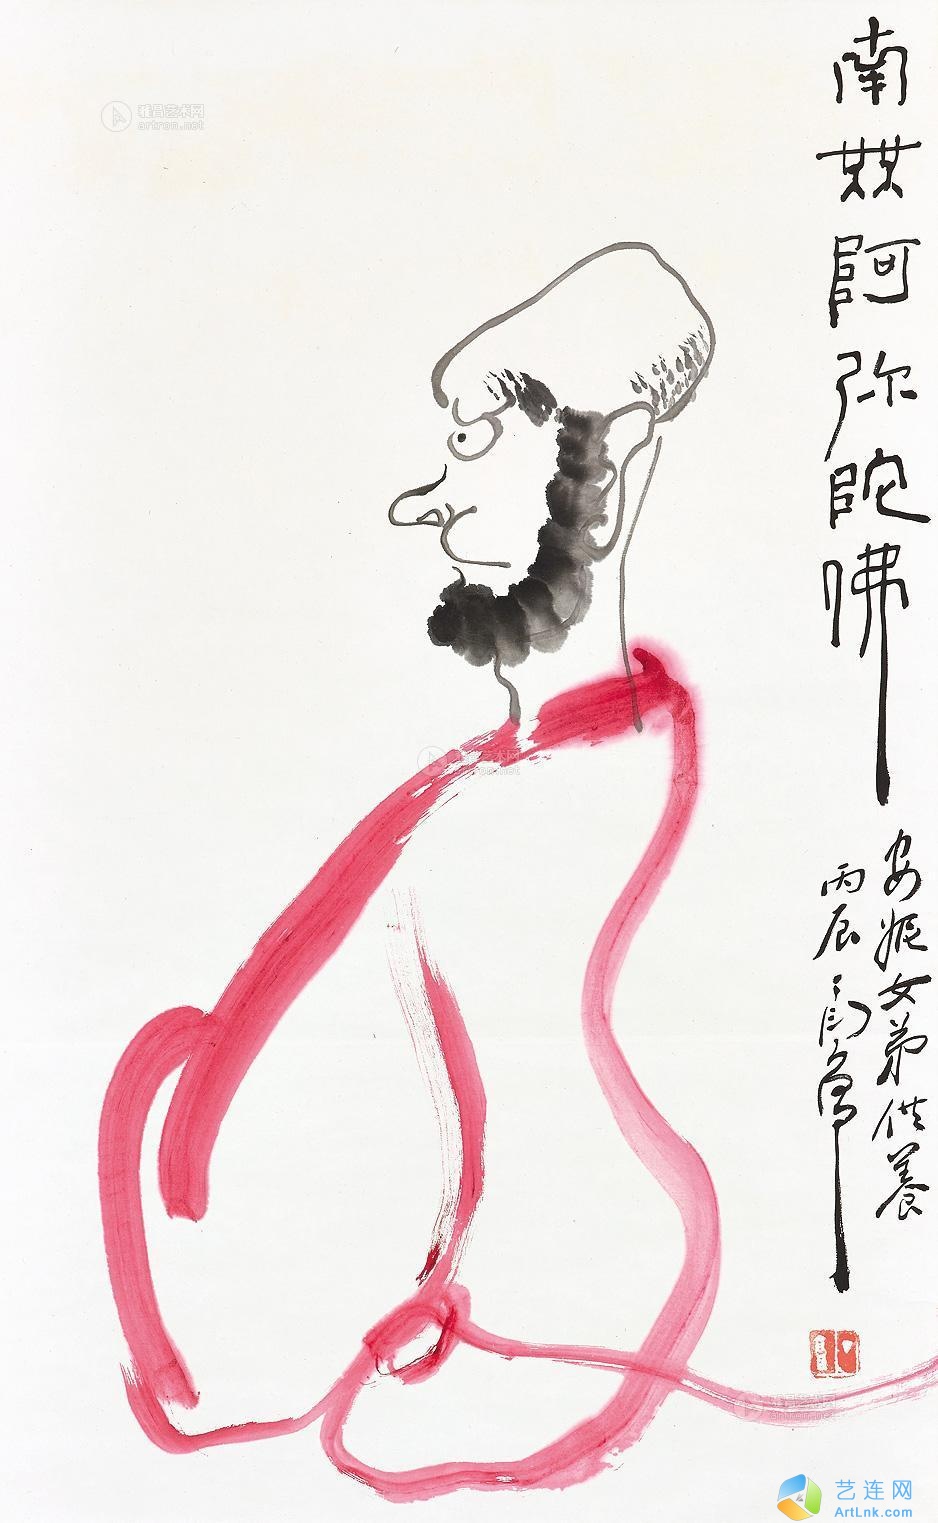 南無阿弥陀佛
安妮女弟供養
丙辰
雅昌艺术网
artron.net
艺连网
ArtLnk.com